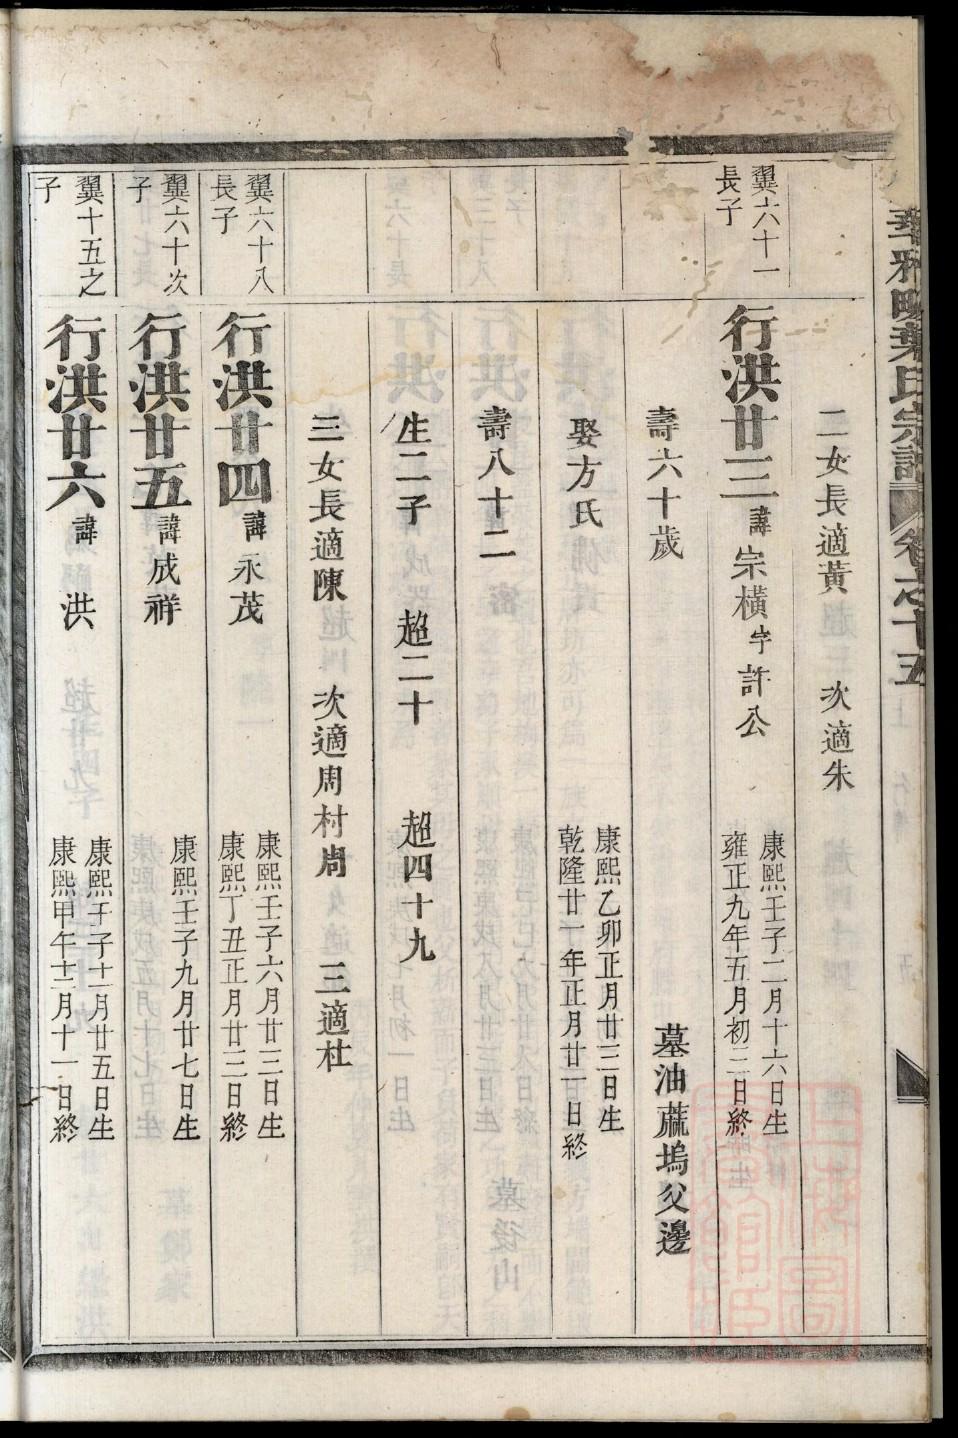 華雅畈葉氏宗譜 卷之十五
二女長適黃 次適朱
翼六十一長子
行洪廿三 諱宗橫 字許公 康熙壬子二月十六日生 雍正九年五月初二日終
壽六十歲 墓油蔴塢父邊
娶方氏 康熙乙卯正月廿三日生 乾隆廿一年正月廿二日終
壽八十二 墓後山
生二子 超二十 超四十九
三女長適陳 次適周村周 三適杜
翼六十八長子
行洪廿四 諱永茂 康熙壬子六月廿三日生 康熙丁丑正月廿三日終
翼六十次子
行洪廿五 諱成祥 康熙壬子九月廿七日生
翼十五之子
行洪廿六 諱洪 康熙壬子十一月廿五日生 康熙甲午十二月十一日終